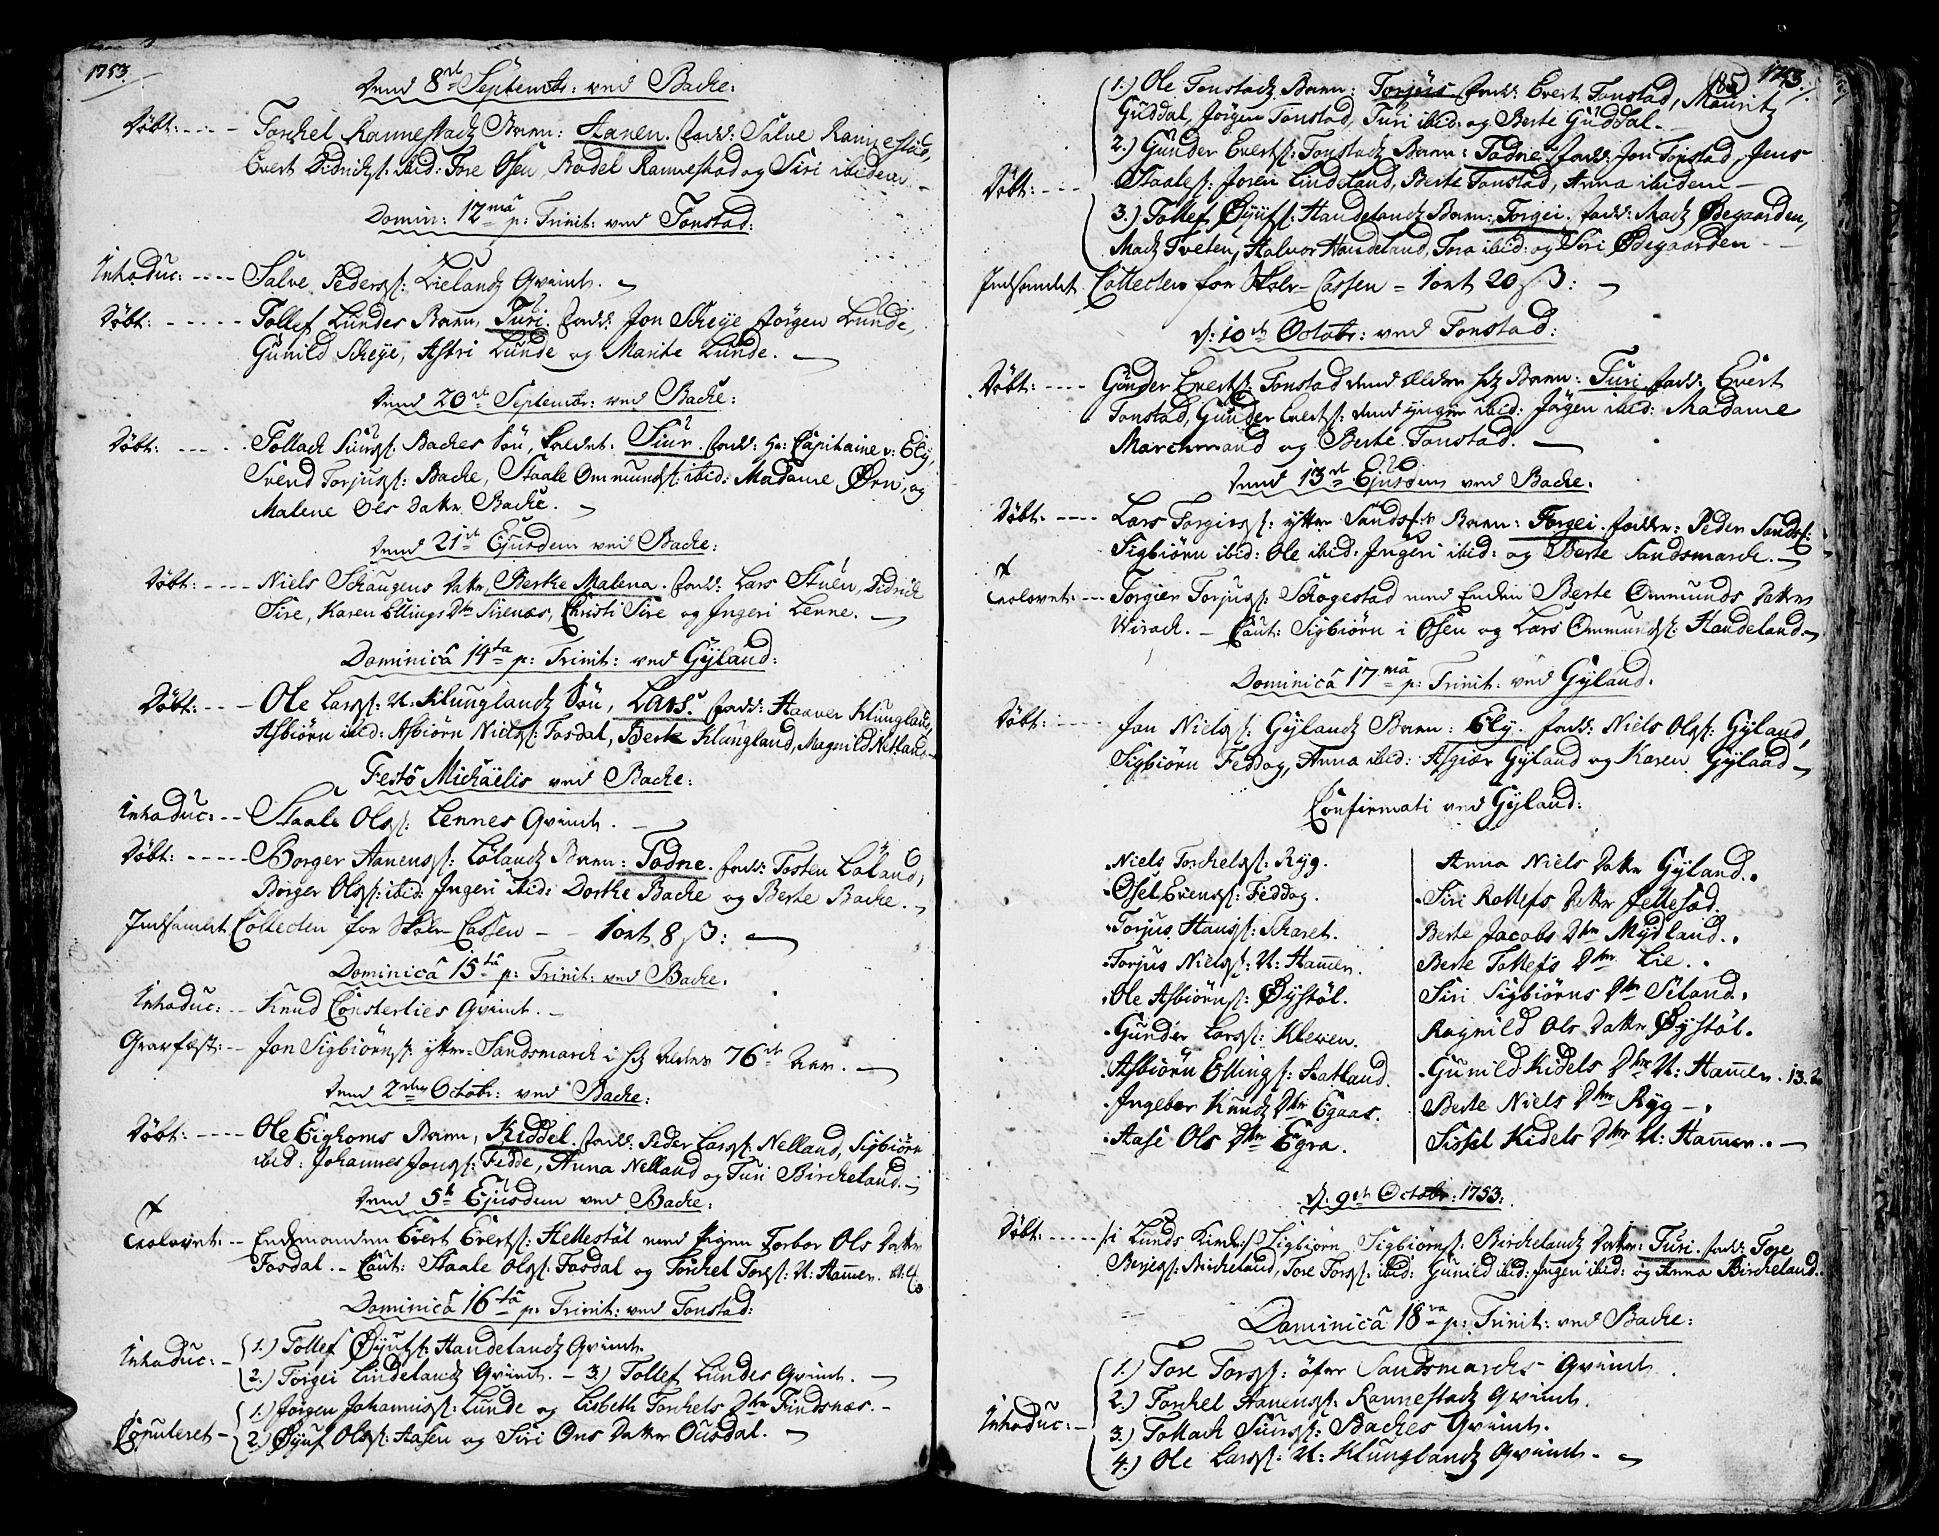 1753.
Dend 8de Septembr: ved Bache:
Døbt: - - - Torchel Rannestads Barn: Aanen. Fadd: Salve Rannestad,
Evert Didrichs: ibid: Tore Osen, Bodel Rannestad og Siri ibidem. -
Domin: 12ma p: Trinit: ved Tonstad:
Introduc: - - - - Salve Peders: Lielands Qvinde. -
Døbt: - - - - - Tollef Lundes Barn, Turi. Fadd: Jon Scheje, Jørgen Lunde,
Gunild Scheje, Astri Lunde og Marite Lunde. -
Dend 20de Septembr: ved Bache:
Døbt: - - - - Tollach Siurs: Baches Søn, kaldet. Siur. Fadd: Hr: Capitaine v: Ely,
Svend Torjus: Bache, Staale Ommunds: ibid: Madame Ørn, og
Malene Ols Datter Bache. -
Dend 21de Ejusdem ved Bache:
Døbt: - - - - Niels Schaugens Datter, Berthe Malena. Fadd: Lars Stuen, Didrich
Sire, Karen Ellings Dtr Sirenæs, Christi Sire og Ingeri Lenne. -
Dominica 14ta p: Trinit: ved Gyland:
Døbt: - - - Ole Lars: N: Klunglands Søn, Lars. Fadd: Haaver Klungland,
Asbiørn ibid: Asbiørn Niels: Fosdal, Berte Klungland, Magnild Netland -
Festo Michaëlis ved Bache:
Introduc: - - Staale Ols: Lennes Qvinde. -
Døbt: - - - - - Børger Aanens: Løelands Barn: Todne. Fadd: Tosten Løland,
Børger Ols: ibid: Ingeri ibid: Dorthe Bache og Berte Bache. -
Indsamlet Collecten for Skole-Cassen - - 1 ort 8 ß: -
Dominica 15ta p: Trinit: ved Bache.
Introduc: - Knud Consterlies Qvinde. -
Gravfæst: - Jon Sigbiørns: yttre-Sandsmarch i sit Alders 76de Aar. -
Dend 2den Octobr: ved Bache:
Døbt: - - - - Ole Eighoms Barn, Kiddel. Fadd: Peder Lars: Nelland, Sigbiørn
ibid: Johannes Jons: Fedde, Anna Nelland og Turi Bircheland. -
Dend 5te Ejusdem ved Bache:
Trolovet: - Enchemanden Evert Everts: Hellestøl med Pigen Torbor Ols Datter
Fosdal. - Caut: Staale Ols: Fosdal og Torchel Tors: N: Hammer.
Dominica 16ta p: Trinit: ved Tonstad:
Introduc: - 1.) Tollef Øyufs: Haudelands Qvinde.
2.) Torgei Lindelands Qvinde. - 3.) Tollef Lundes Qvinde. -
Copuleret - 1.) Jørgen Johannis: Lunde og Lisbeth Torchels Dtr Findsnæs. -
2.) Øyuf Ols: Aasen og Siri Ons Datter Ousdal. -
85
1753.
1.) Ole Tonstads Barn: Torjus. Fadd: Evert Tonstad, Mauritz
Guddal, Jørgen Tonstad, Turi ibid: og Berte Guddal. -
2.) Gunder Everts: Tonstads Barn: Todne. Fadd: Jon Tonstad, Jens
Døbt: - - - Staales: Joren Lindeland, Berte Tonstad, Anna ibidem -
3.) Tollef Øyufs: Haudelands Barn: Torgei. Fadd: Mads Ødegaarden,
Mads Tveten, Halvor Haudeland, Tora ibid: og Siri Ødegaarden - -
Indsamlet Collecten for Skole-Cassen - 1 ort 20 ß: -
d: 10de Octobr: ved Tonstad:
Døbt: - - - - Gunder Everts: Tonstad dend ældre sit Barn: Turi. Fadd: Evert
Tonstad, Gunder Everts: dend yngre ibid: Jørgen ibid: Madame
Marchmand og Berte Tonstad. -
Dend 13de Ejusdem ved Bache.
Døbt: - - - - Lars Torgiers: yttre Sands:r Barn: Torgei. Fadder: Peder Sands:
Sigbiørn ibid: Ole ibid: Ingeri ibid: og Berte Sandsmarch. -
Trolovet: - - Torgier Torjus: Schogestad med Enchen Berte Ommunds Datter
Wirach. - Caut: Sigbiørn i Osen og Lars Ommunds: Haudeland -
Dominica 17ma p: Trinit: ved Gyland.
Døbt: - - - - Jon Niels: Gylands Barn: Ely. Fadd: Niels Ols: Gyland,
Sigbiørn Feddog, Anna ibid: Asgier Gyland og Karen Gyland -
Confirmati ved Gyland:
Niels Torchels: Ryg.
Osel Evens: Feddog.
Torjus Hans: Scharet.
Torjus Niels: N: Hammer.
Ole Asbiørns: Øystøl.
Gunder Lars: Kleven.
Asbiørn Ellings: Aatland.
Ingebor Knuds Dtr Egaas.
Aase Ols Dtr Egra.
Anna Niels Datter Gyland.
Siri Rollefs Datter Jellesad.
Berte Jacobs Dtr Mydland.
Berte Tollefs Dtr Lie.
Siri Sigbiørns Dtr Siland.
Ragnild Ols Datter Øystøl.
Gunild Kidels Dtr N: Hammer.
Berte Niels Dtr Ryg -
Sissel Kidels Dtr N: Hammer. -
d. 9de Octobr: 1753:
Døbt: - - - - - /:i Lunds Kirche:/ Sigbiørn Sigbiørns: Birchelands Datter: Turi. Fadd: Tore
Berjes: Bircheland, Tore Tors: ibid: Gunild ibid: Ingeri ibid: og Anna Bircheland.
Dominica 18va p: Trinit: ved Bache:
1.) Tore Tors: øfre Sandsmarchs Qvinde.
2.) Torchel Aanens: Rannestads Qvinde.
Introduc: - 3.) Tollach Siurs: Baches Qvinde.
4.) Ole Lars: N: Klunglands Qvinde. -